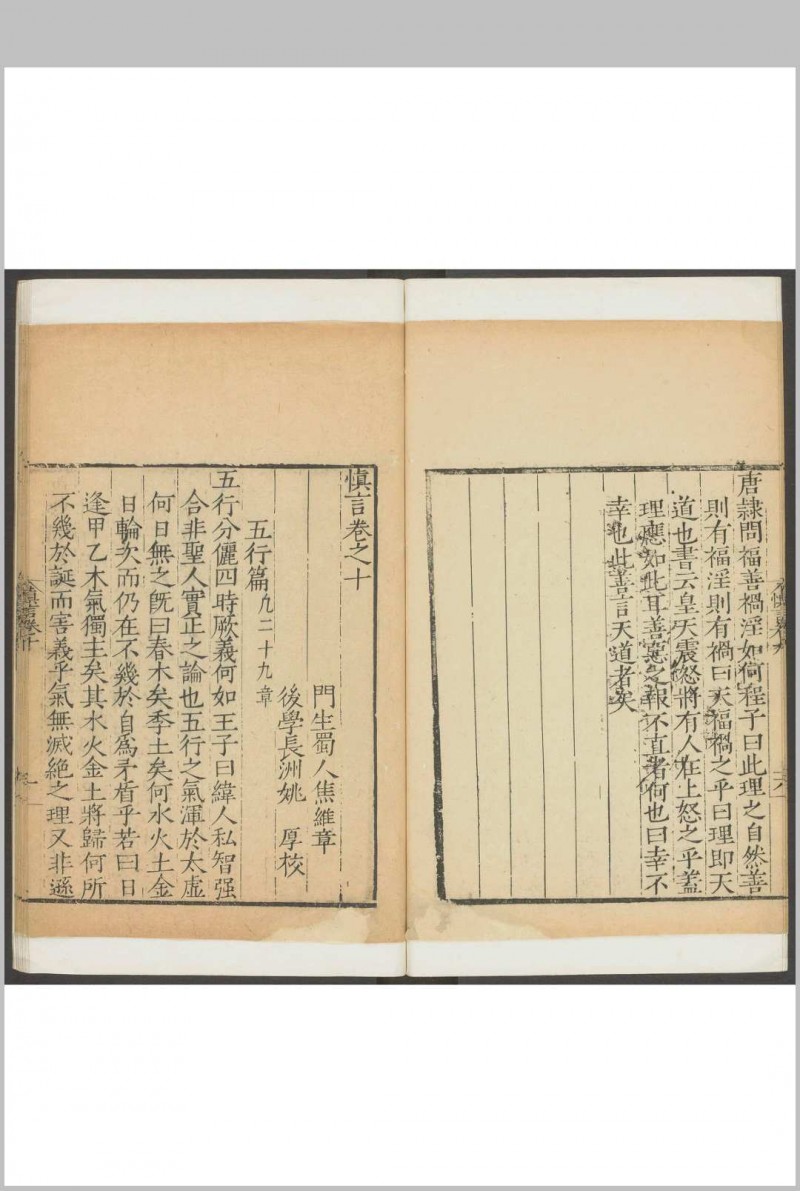 唐隸問福善禍淫如何程子曰此理之自然善
則有福淫則有禍曰天福禍之乎曰理即天
道也書云皇天震怒將有人在上怒之乎蓋
理應如此耳善惡之報不直者何也曰幸不
幸也此善言天道者矣
慎言卷之十
門生蜀人焦維章
後學長洲姚 厚校
五行篇凡二十九章
五行分儷四時厥義何如王子曰緯人私智强
合非聖人實正之論也五行之氣渾於太虛
何日無之既曰春木矣季土矣何水火土金
日輪次而仍在不幾於自為矛盾乎若曰日
逢甲乙木氣獨主矣其水火金土將歸何所
不幾於誕而害義乎氣無滅絕之理又非遜